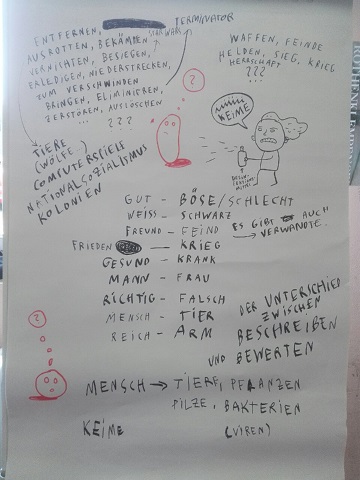 ENTFERNEN,
TERMINATOR
AUSROTTEN, BEKÄMPFEN
STAR WARS
VERNICHTEN, BESIEGEN,
ERLEDIGEN, NIEDERSTRECKEN,
ZUM VERSCHWINDEN
BRINGEN, ELIMINIEREN,
ZERSTÖREN, AUSLÖSCHEN
... ???
WAFFEN, FEINDE
HELDEN, SIEG, KRIEG
HERRSCHAFT
???
?
KEIME
TIERE
(WÖLFE)
COMPUTERSPIELE
NATIONALSOZIALISMUS
KOLONIEN
GUT - BÖSE/SCHLECHT
WEISS - SCHWARZ
FREUND - FEIND
ES GIBT AUCH
VERWANDTE.
FRIEDEN - KRIEG
GESUND - KRANK
MANN - FRAU
RICHTIG - FALSCH
MENSCH - TIER
REICH - ARM
DER UNTERSCHIED
ZWISCHEN
BESCHREIBEN
UND BEWERTEN
?
MENSCH → TIERE, PFLANZEN
PILZE, BAKTERIEN
KEIME (VIREN)